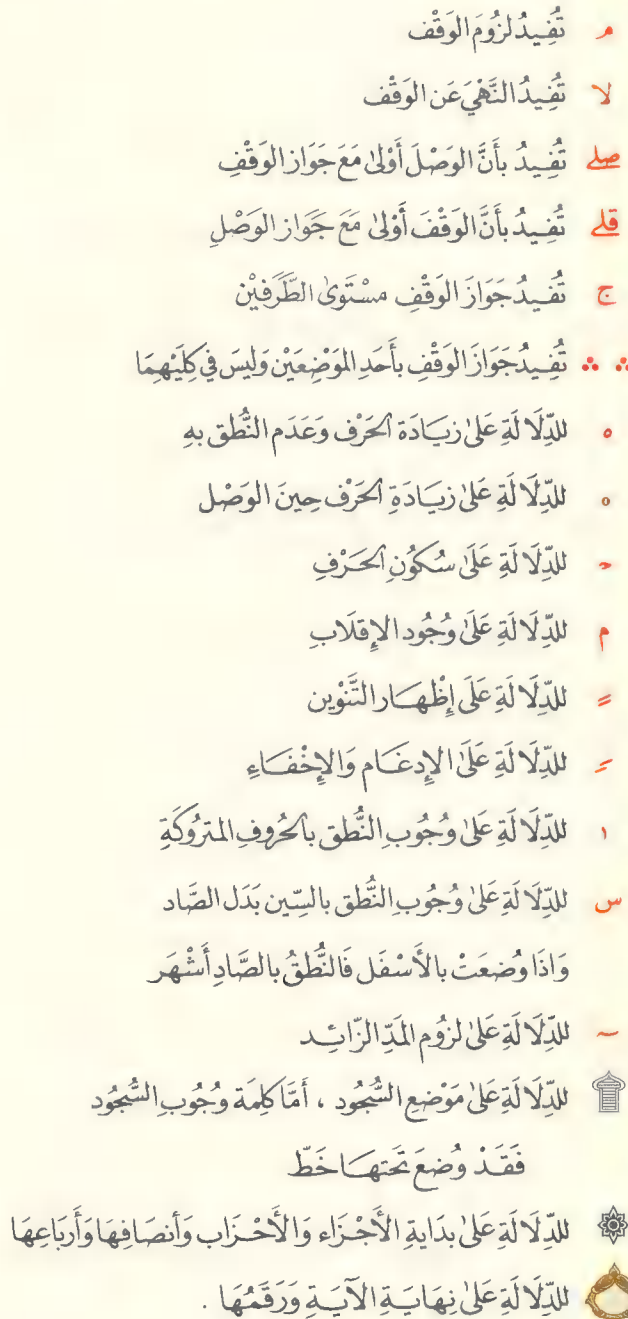 مـ تُفِيدُ لزُومَ الوَقْف
لا تُفِيدُ النَّهْيَ عَن الوَقْف
صلے تُفِيدُ بأَنَّ الوَصْلَ أَوْلىٰ مَعَ جَوَاز الوَقْفِ
قلے تُفِيدُ بأَنَّ الوَقْفَ أَوْلىٰ مَعَ جَوَاز الوَصْلِ
ج تُفِيدُ جَوَازَ الوَقْفِ مسْتَوىٰ الطَّرَفيْن
∴ ∴ تُفِيدُ جَوَازَ الوَقْفِ بأَحَدِ المَوْضِعَيْن وَليسَ في كِلَيْهِمَا
ه للدِّلَالَةِ عَلىٰ زيَادَة الحَرْف وَعَدَم النُّطق بهِ
o للدِّلَالَةِ عَلىٰ زيَادَةِ الحَرْف حِينَ الوَصْل
ح للدِّلَالَةِ عَلَىٰ سُكُونِ الحَرْفِ
م للدِّلَالَةِ عَلَىٰ وُجُود الإِقلَابِ
ـً للدِّلَالَةِ عَلَى إِظْهَار التَّنْوِين
ـً للدِّلَالَةِ عَلَىٰ الإِدغَام وَالإِخْفَاءِ
ا للدِّلَالَةِ عَلىٰ وُجُوبِ النُّطق بالحُروفِ المَتروُكَةِ
س للدِّلَالَةِ عَلىٰ وُجُوبِ النُّطق بالسِّين بَدَل الصَّاد
وَاذَا وُضعَتْ بالأَسْفَل فَالنُّطقُ بالصَّادِ أَشْهَر
~ للدِّلَالَةِ عَلىٰ لزوُم المَدِّ الزَّائِد
للدِّلَالَةِ عَلىٰ مَوْضعِ السُّجُود ، أَمَّا كلِمَة وُجُوبِ السُّجُود
فَقَدْ وُضعَ تَحتهَا خَطّ
للدِّلَالَةِ عَلىٰ بدَايَةِ الأَجْزَاء وَالأَحْزَاب وَأَنصَافِهَا وَأَربَاعِهَا
للدِّلَالَةِ عَلىٰ نِهَايَةِ الآيَةِ وَرَقمُهَا .